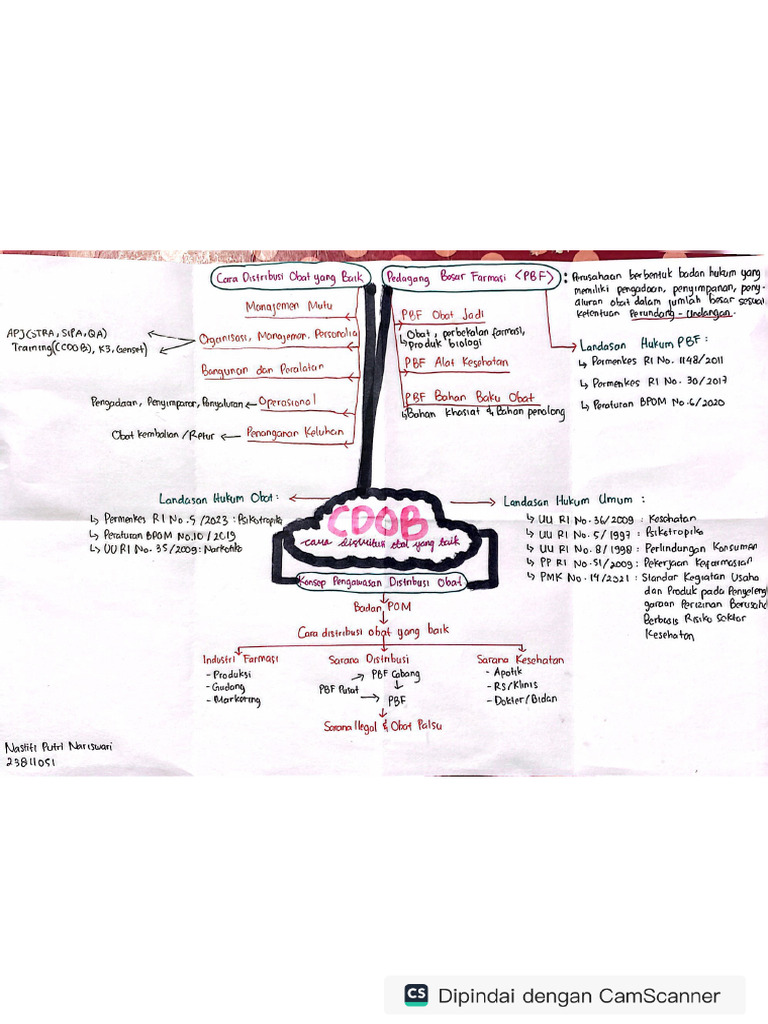 Cara Distribusi Obat yang Baik
Manajemen Mutu
Organisasi, Manajemen, Personalia
APJ (STRA, SIPA, QA)
Training (CDOB), K3, Genset)
Bangunan dan Peralatan
Operasional
Pengadaan, Penyimpanan, Penyaluran
Penanganan Keluhan
Obat kembalian / Retur
Pedagang Besar Farmasi <PBF>
: Perusahaan berbentuk badan hukum yang
memiliki pengadaan, penyimpanan, peny-
aluran obat dalam jumlah besar sesuai
ketentuan Perundang-Undangan.
PBF Obat Jadi
Obat, perbekalan farmasi,
produk biologi
PBF Alat Kesehatan
PBF Bahan Baku Obat
Bahan khasiat & Bahan penolong
Landasan Hukum PBF :
Permenkes RI No. 1148/2011
Permenkes RI No. 30/2017
Peraturan BPOM No. 6/2020
Landasan Hukum Obat :
Permenkes RI No. 5 /2023 : Psikotropika
Peraturan BPOM No.10 /2019
UU RI No. 35/2009: Narkotika
CDOB
cara distribusi obat yang baik
Landasan Hukum Umum :
UU RI No. 36/2009 : Kesehatan
UU RI No. 5/1997 : Psikotropika
UU RI No. 8/1998 : Perlindungan Konsumen
PP RI No. 51/2009 : Pekerjaan Kefarmasian
PMK No. 14/2021 : Standar Kegiatan Usaha
dan Produk pada Penyeleng
garaan Perizinan Berusaha
Berbasis Risiko Sektor
Kesehatan
Konsep Pengawasan Distribusi Obat
Badan POM
Cara distribusi obat yang baik
Industri Farmasi
- Produksi
- Gudang
- Marketing
Sarana Distribusi
PBF Cabang
PBF Pusat
PBF
Sarana Kesehatan
- Apotik
- RS/Klinis
- Dokter/Bidan
Sarana Ilegal & Obat Palsu
Nastiti Putri Nariswari
23811051
CS Dipindai dengan CamScanner